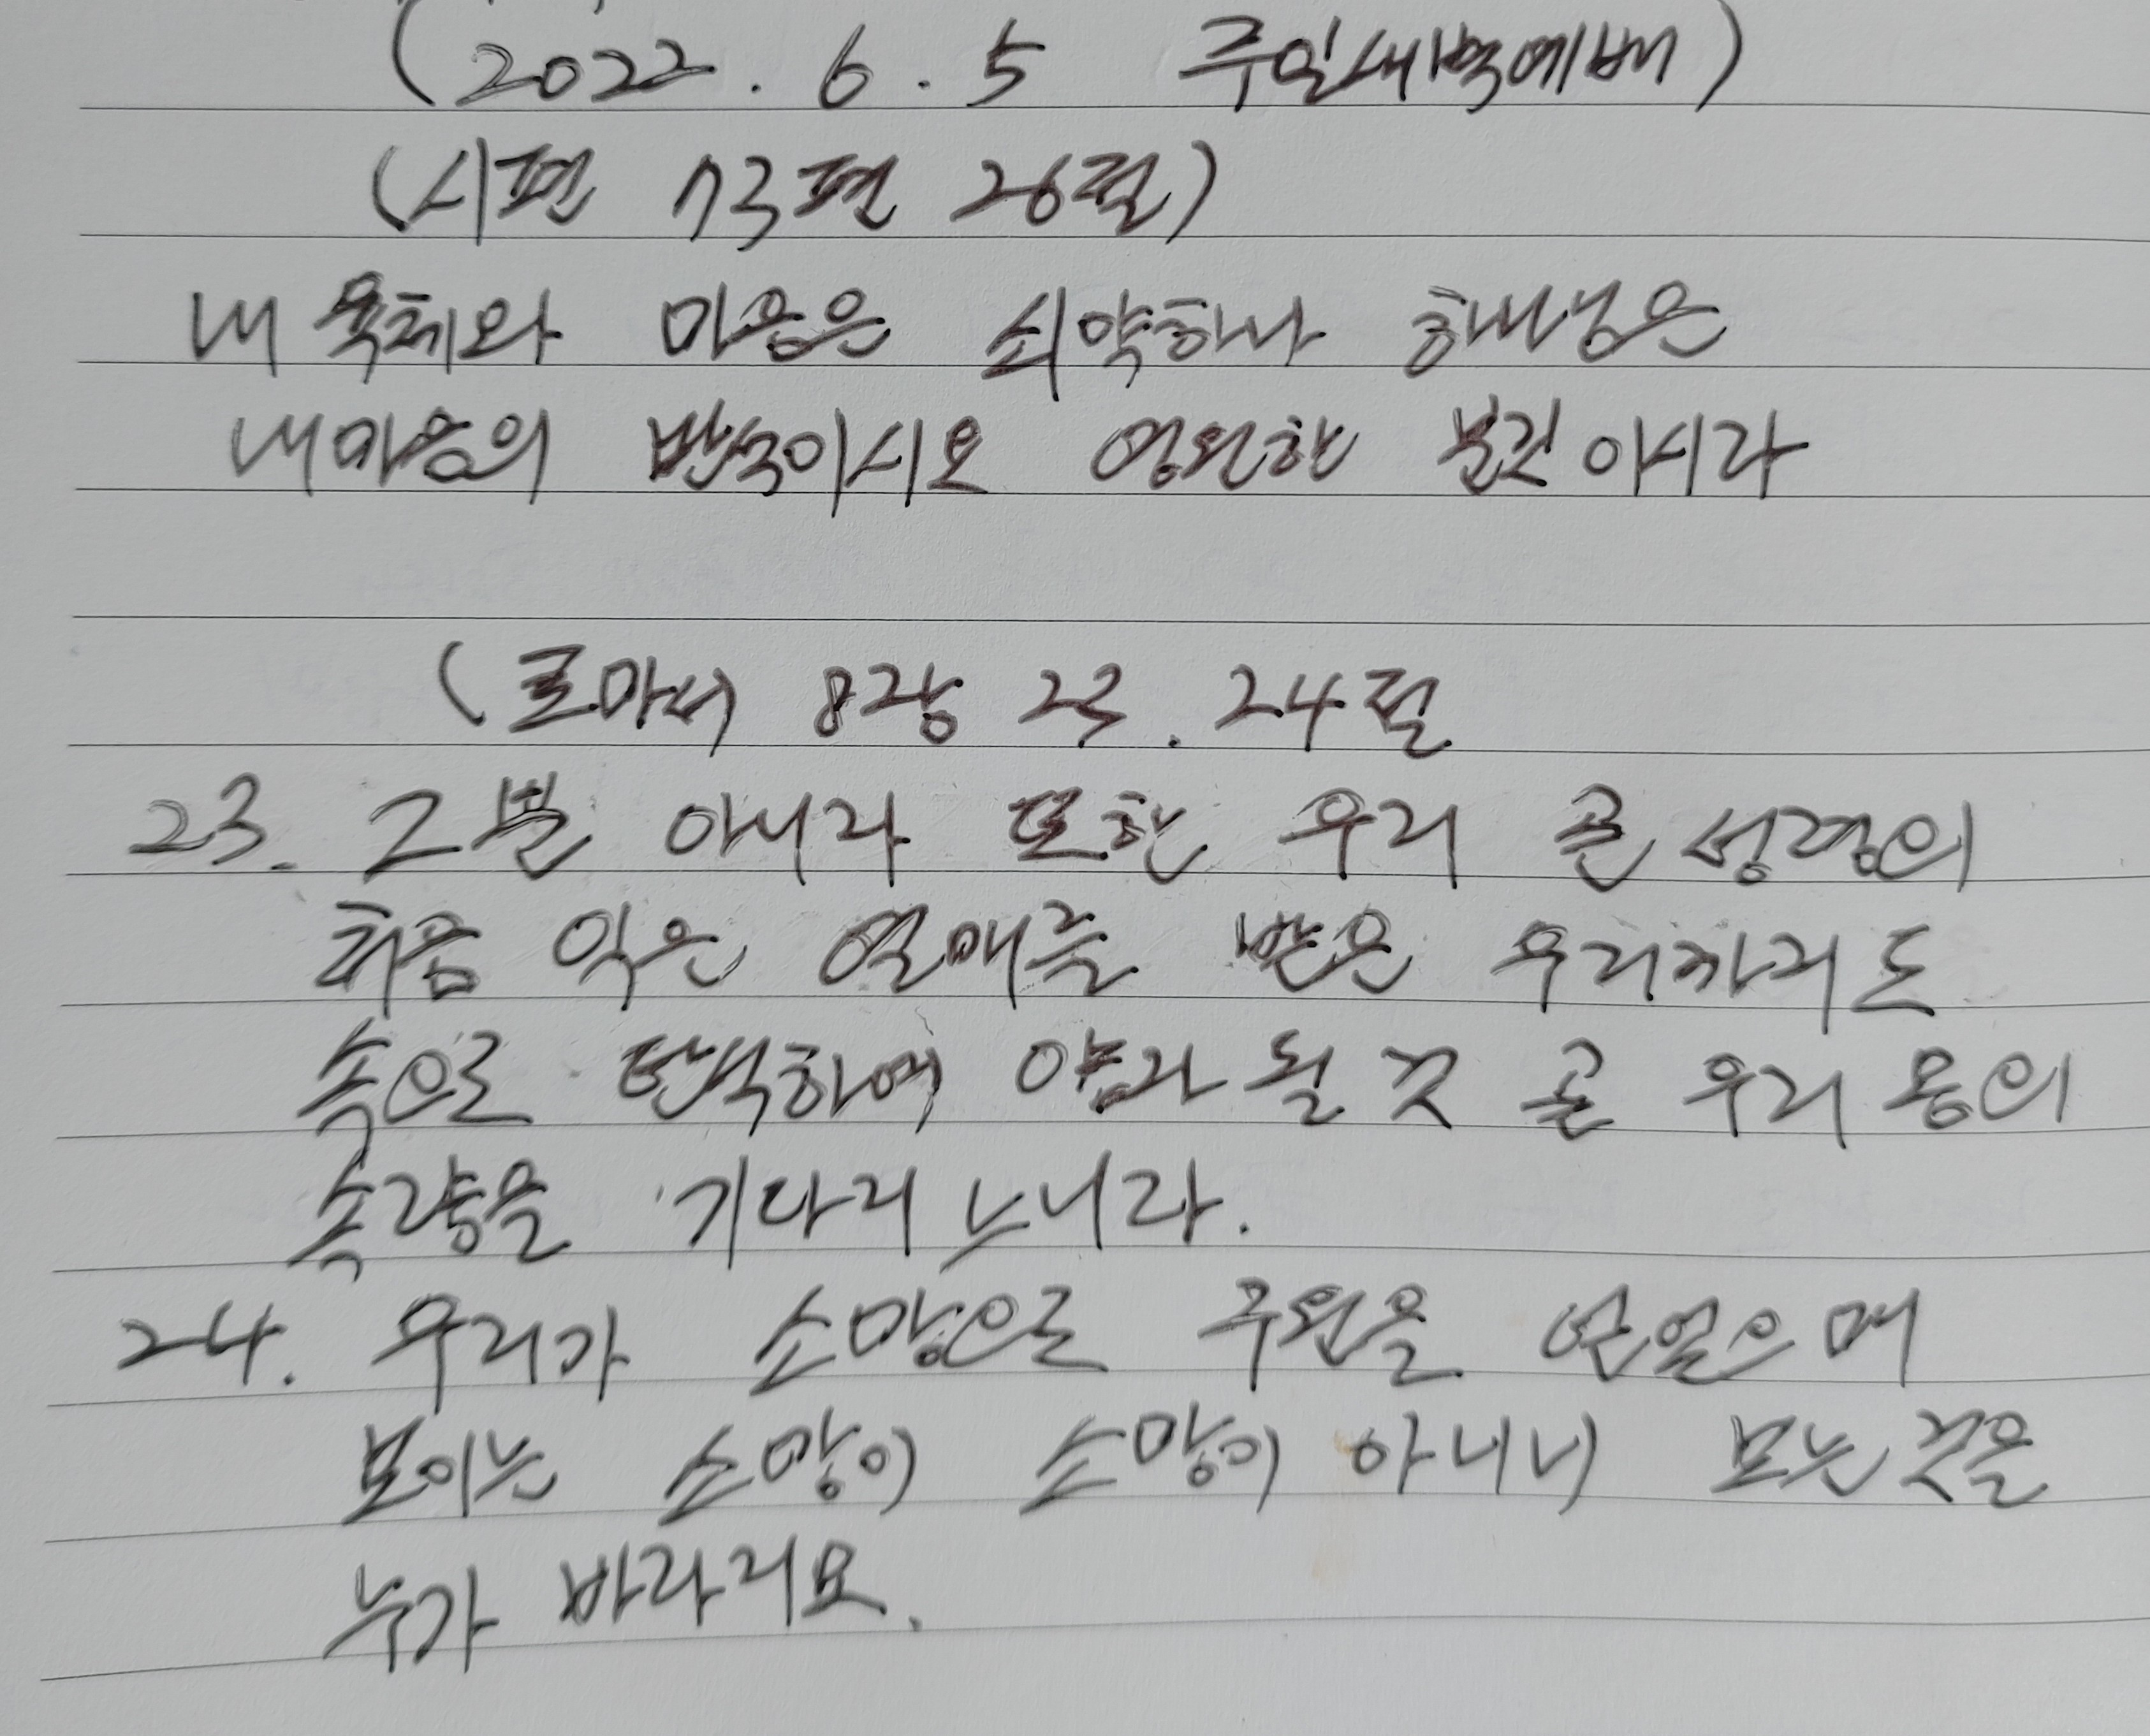 (2022. 6. 5 주일새벽예배)
(시편 73편 26절)
내 육체와 마음은 쇠약하나 하나님은
내마음의 반석이시요 영원한 분깃 이시라
(로마서 8장 23. 24절
23. 그뿐 아니라 또한 우리 곧 성령의
처음 익은 열매를 받은 우리까지도
속으로 탄식하여 양자 될 것 곧 우리 몸의
속량을 기다리느니라.
24. 우리가 소망으로 구원을 얻었으매
보이는 소망이 소망이 아니니 보는 것을
누가 바라리요.